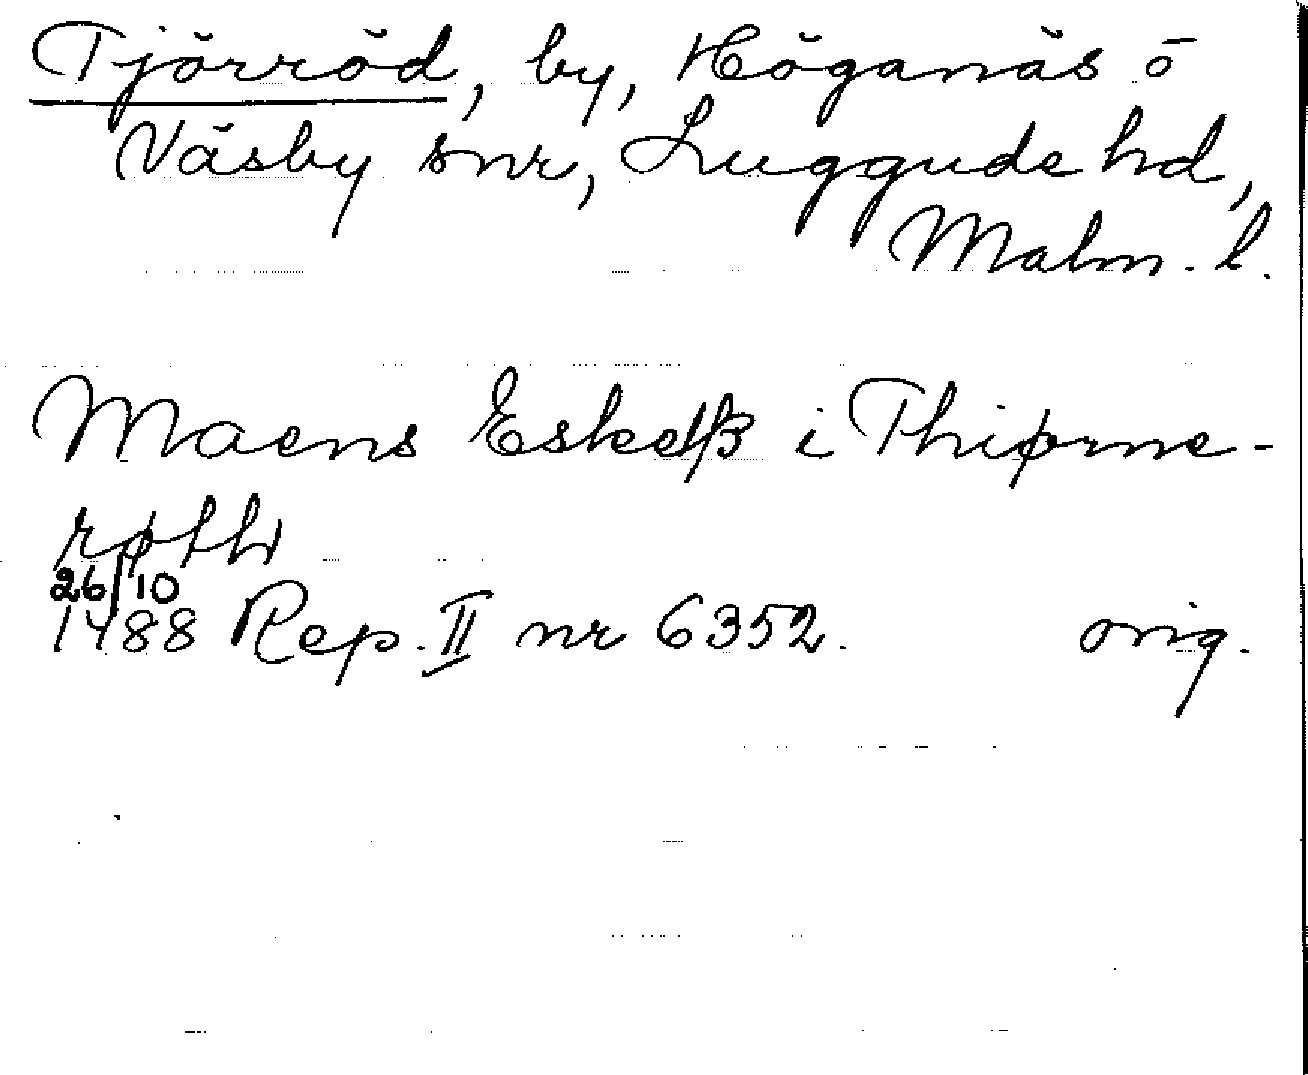 Tjörröd, by, Höganäs o
Väsby snr, Luggude hd,
Malm. l.
Maens Eskelß i Thiørne-
røthh
26/10
1488 Rep. II nr 6352. orig.